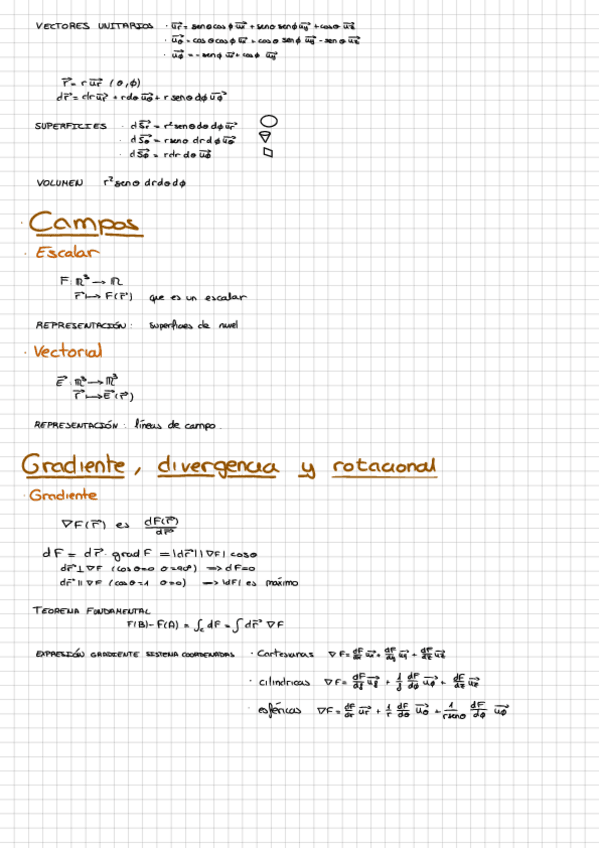 VECTORES UNITARIOS · u⃗r = senθcosϕ u⃗x + senθ senϕ u⃗y + cosθ u⃗z
· u⃗θ = cosθcosϕ u⃗x + cosθ senϕ u⃗y - senθ u⃗z
· u⃗ϕ = -senϕ u⃗x + cosϕ u⃗y
r⃗ = r u⃗r (θ,ϕ)
dr⃗ = dr u⃗r + rdθ u⃗θ + r senθ dϕ u⃗ϕ
SUPERFICIES · dS⃗r = r² senθ dθ dϕ u⃗r
· dS⃗θ = r senθ dr dϕ u⃗θ
· dS⃗ϕ = r dr dθ u⃗ϕ
VOLUMEN r² senθ dr dθ dϕ
· Campos
· Escalar
F: ℝ³ → ℝ
r⃗ ↦ F(r⃗) que es un escalar
REPRESENTACIÓN: superficies de nivel
· Vectorial
E⃗: ℝ³ → ℝ³
r⃗ ↦ E⃗(r⃗)
REPRESENTACIÓN: líneas de campo
Gradiente, divergencia y rotacional
· Gradiente
∇F(r⃗) es dF(r⃗)/dr⃗
dF = dr⃗ · grad F = |dr⃗| |∇F| cosθ
dr⃗ ⊥ ∇F (cosθ=0 θ=90º) => dF=0
dr⃗ || ∇F (cosθ=1 θ=0) => |dF| es máximo
TEOREMA FUNDAMENTAL
F(B)-F(A) = ∫c dF = ∫ dr⃗ ∇F
EXPRESIÓN GRADIENTE SISTEMA COORDENADAS · Cartesianas ∇F = dF/dx u⃗x + dF/dy u⃗y + dF/dz u⃗z
· cilíndricas ∇F = dF/dρ u⃗ρ + 1/ρ dF/dϕ u⃗ϕ + dF/dz u⃗z
· esféricas ∇F = dF/dr u⃗r + 1/r dF/dθ u⃗θ + 1/rsenθ dF/dϕ u⃗ϕ